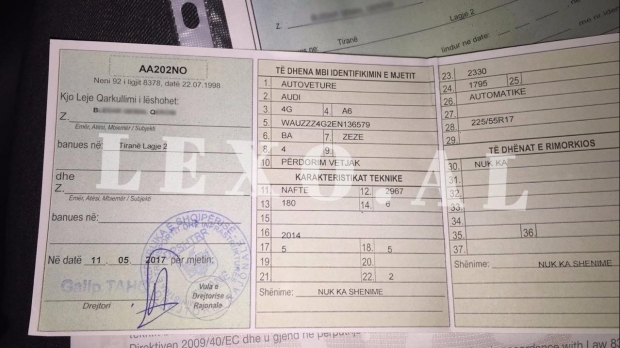 Tiranë
Lagje 2
ne:
lindur ne date:
AA202NO
Neni 92 i ligjit 8378, datë 22.07.1998
Kjo Leje Qarkullimi i lëshohet:
Z.
Emër, Atësi, Mbiemër / Subjekti
banues në: Tiranë Lagje 2
dhe
Z.
Emër, Atësi, Mbiemër / Subjekti
banues në:
Në datë 11 05 2017 për mjetin:
Galip
Drejtori
Vula e
Drejtorise
Rajonale
TË DHENA MBI IDENTIFIKIMIN E MJETIT
1. AUTOVETURE
2. AUDI
3. 4G 4. A6
5. WAUZZZ4G2EN136579
6. BA 7. ZEZE
8. 4 9.
10. PËRDORIM VETJAK
KARAKTERISTIKAT TEKNIKE
11. NAFTE 12. 2967
13. 180 14. 6
16. 2014
17. 5 18. 5
19. 20.
21. 22. 2
Shënime: NUK KA SHENIME
23. 2330
24. 1795 25.
26. AUTOMATIKE
27.
28. 225/55R17
29.
TË DHËNAT E RIMORKIOS
30. NUK KA
31.
32.
33.
34.
35. 36.
37.
Shënime: NUK KA SHENIME
LEXO.AL
Direktiven 2009/40/EC dhe u gjend në përputhje
accordance with Law 83